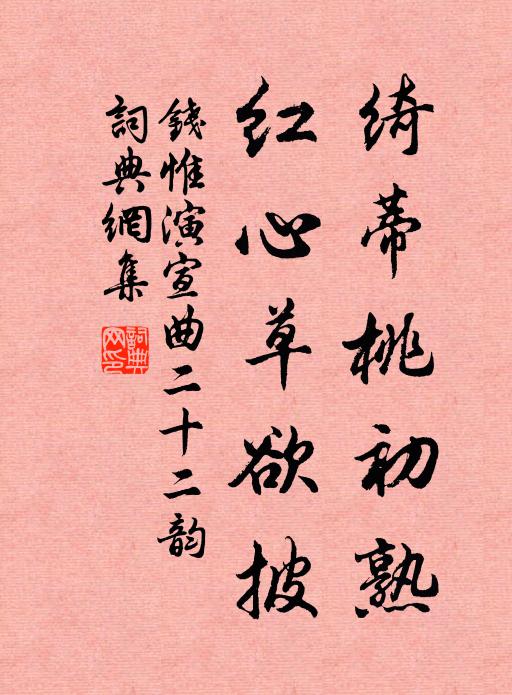 绮蒂桃初熟
红心草欲披
錢惟演宣曲二十二韵
詞典網集
詞典網印